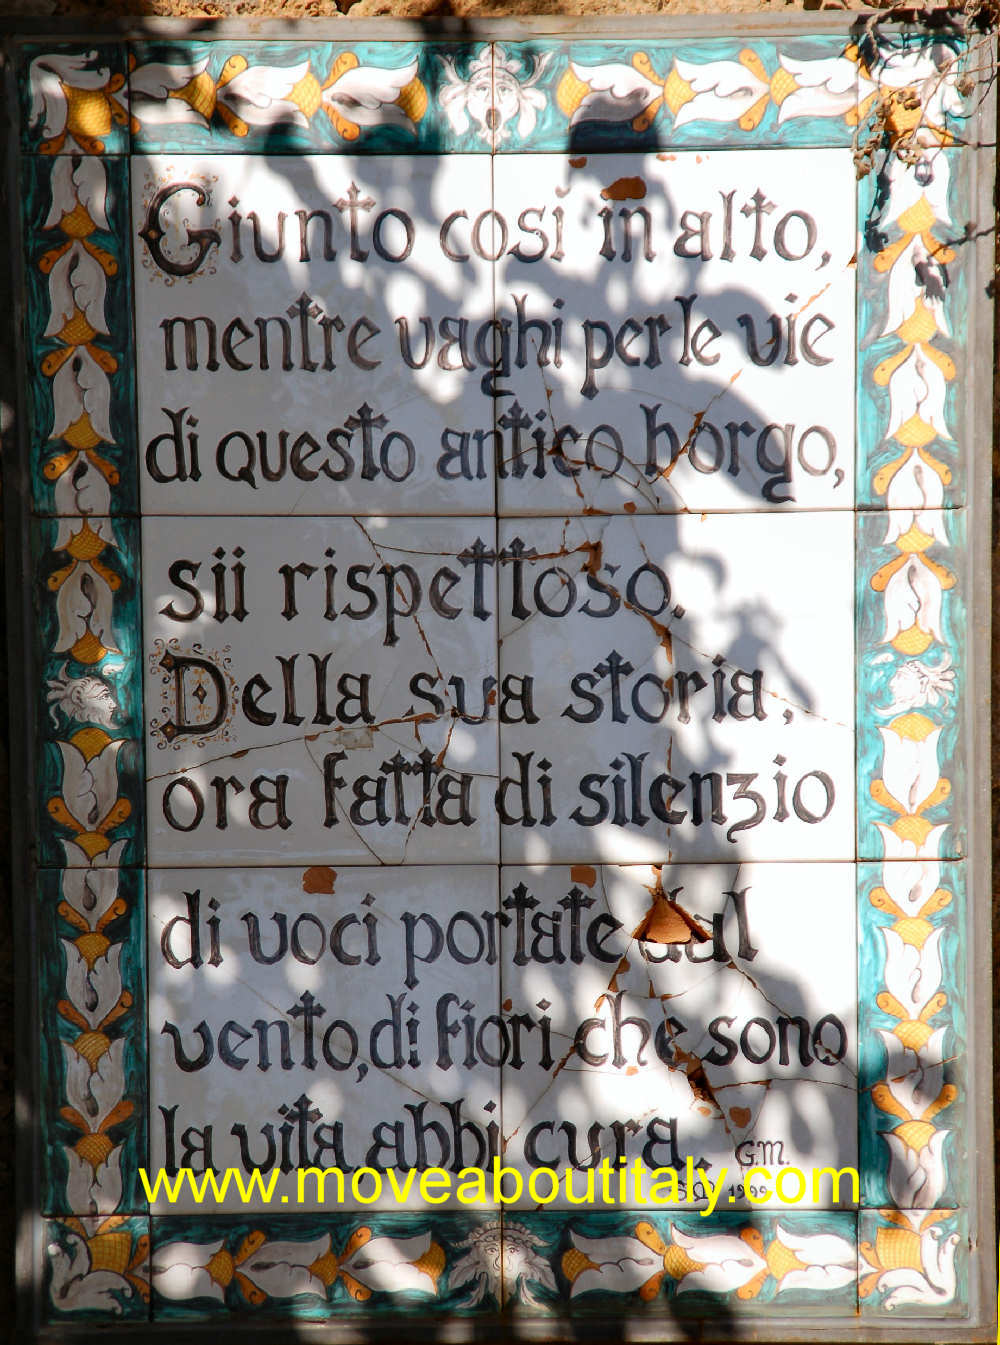 Giunto così in alto,
mentre vaghi per le vie
di questo antico borgo,
sii rispettoso.
Della sua storia,
ora fatta di silenzio
di voci portate dal
vento, di fiori che sono
la vita, abbi cura.
G.M.
1999
www.moveaboutitaly.com